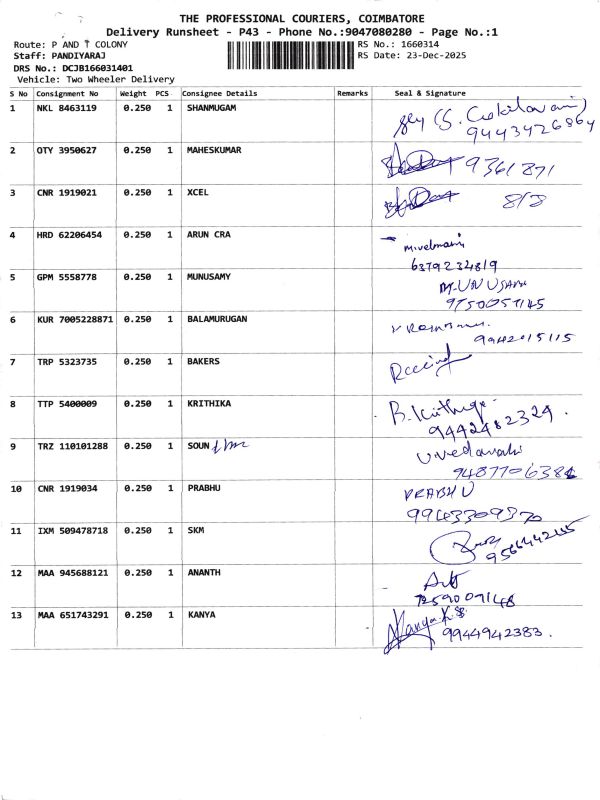 THE PROFESSIONAL COURIERS, COIMBATORE
Delivery Runsheet - P43 - Phone No.:9047080280 - Page No.:1
Route: P AND T COLONY
RS No.: 1660314
Staff: PANDIYARAJ
RS Date: 23-Dec-2025
DRS No.: DCJB166031401
Vehicle: Two Wheeler Delivery
S No Consignment No Weight PCS Consignee Details Remarks Seal & Signature
1 NKL 8463119 0.250 1 SHANMUGAM
9443426864
2 OTY 3950627 0.250 1 MAHESKUMAR 9361871
3 CNR 1919021 0.250 1 XCEL 8/8
4 HRD 62206454 0.250 1 ARUN CRA M.velmani
6379234819
5 GPM 5558778 0.250 1 MUNUSAMY MUNUSAMY
9750057145
6 KUR 7005228871 0.250 1 BALAMURUGAN
9942015115
7 TRP 5323735 0.250 1 BAKERS Received
8 TTP 5400009 0.250 1 KRITHIKA B.Krithiga
9442482329.
9 TRZ 110101288 0.250 1 SOUN
9487706384
10 CNR 1919034 0.250 1 PRABHU PRABHU
9943309370
11 IXM 509478718 0.250 1 SKM
12 MAA 945688121 0.250 1 ANANTH
7259009148
13 MAA 651743291 0.250 1 KANYA Kanya.K.S
9944942383.